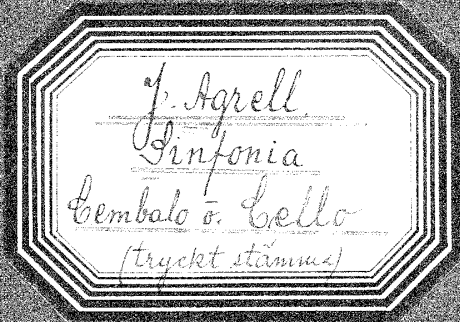 J. Agrell
Sinfonia
Cembalo o. Cello
(tryckt stämma)